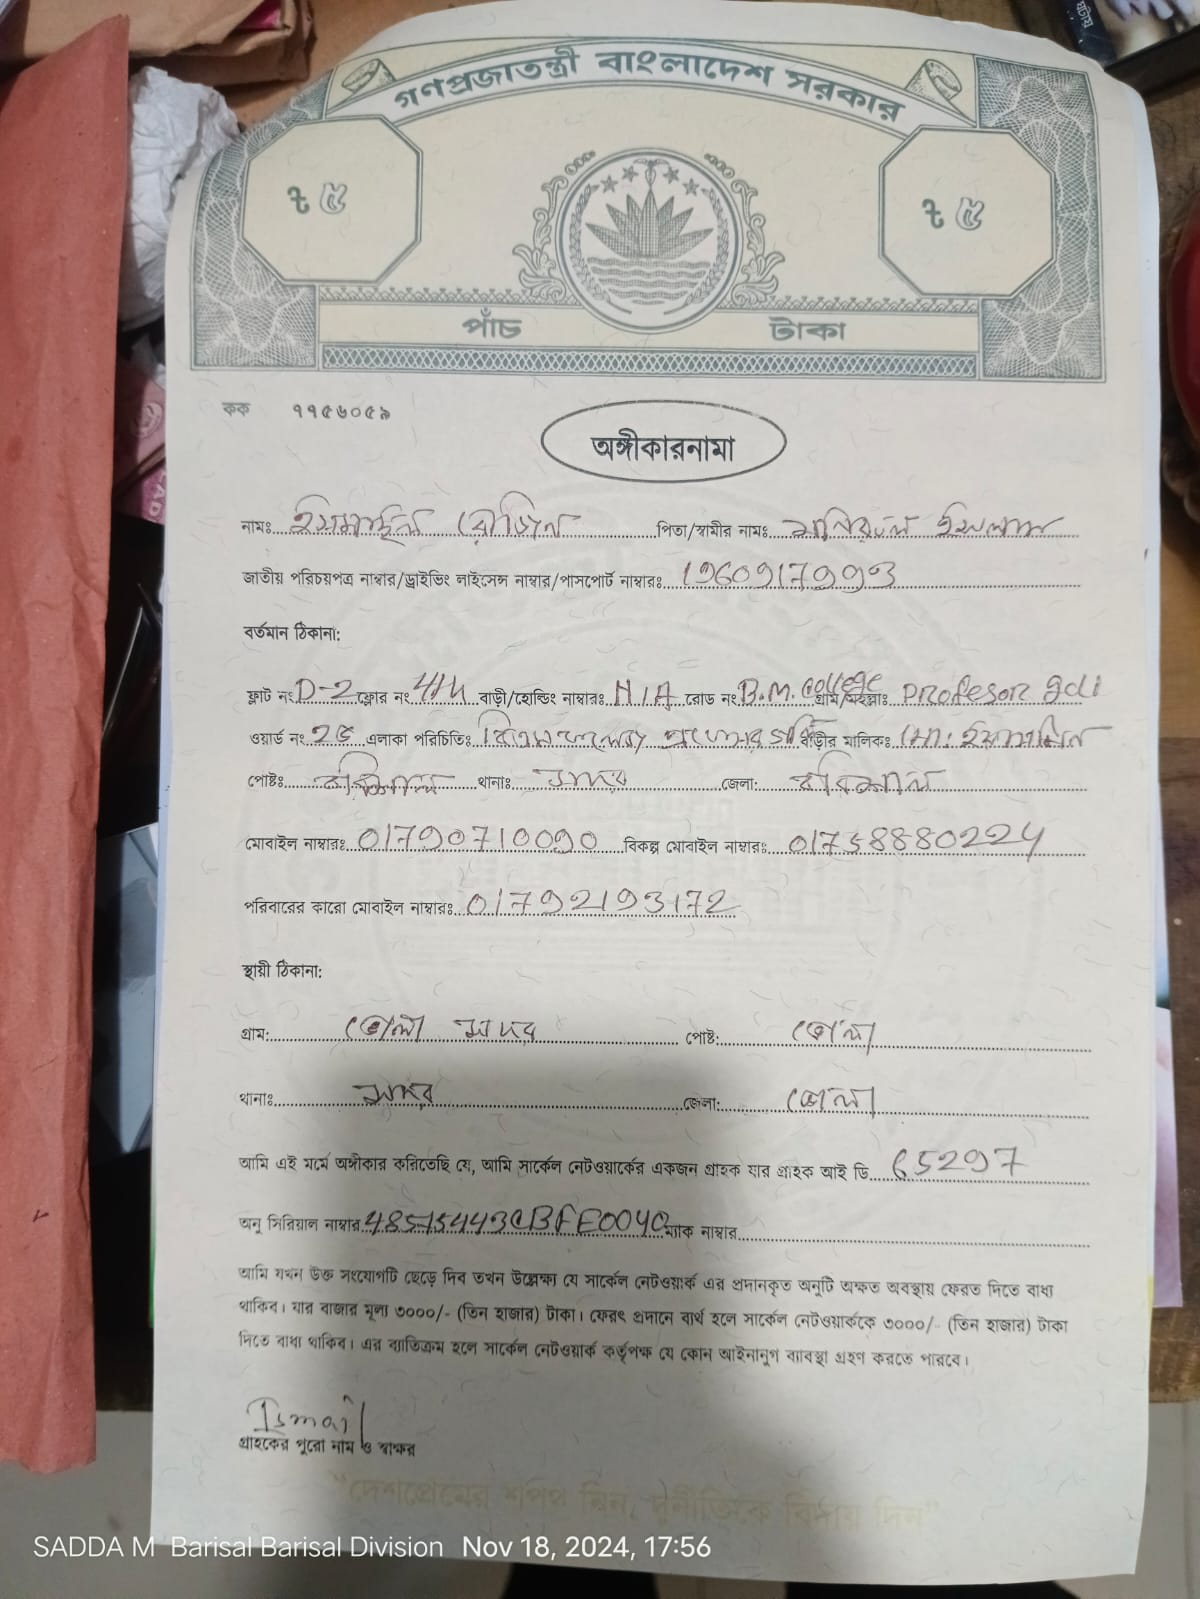 গণপ্রজাতন্ত্রী বাংলাদেশ সরকার
৳ ৫ ৳ ৫
পাঁচ টাকা
কক ৭৭৫৬০৫৯
অঙ্গীকারনামা
নামঃ ইসমাইল হোসেন পিতা/স্বামীর নামঃ মনিরুল ইসলাম
জাতীয় পরিচয়পত্র নাম্বার/ড্রাইভিং লাইসেন্স নাম্বার/পাসপোর্ট নাম্বারঃ
বর্তমান ঠিকানা:
ফ্লাট নং D-2 ফ্লোর নং 4th বাড়ী/হোল্ডিং নাম্বারঃ N/A রোড নং B.M. College গ্রাম/মহল্লাঃ Profesor goli
ওয়ার্ড নং এলাকা পরিচিতিঃ বাড়ীর মালিকঃ
পোষ্টঃ বরিশাল থানাঃ সদর জেলা: বরিশাল
মোবাইল নাম্বারঃ 01790710090 বিকল্প মোবাইল নাম্বারঃ
পরিবারের কারো মোবাইল নাম্বারঃ 01792193172
স্থায়ী ঠিকানা:
গ্রাম: ভোলা সদর পোষ্ট: ভোলা
থানাঃ সদর জেলা: ভোলা
আমি এই মর্মে অঙ্গীকার করিতেছি যে, আমি সার্কেল নেটওয়ার্কের একজন গ্রাহক যার গ্রাহক আই ডি 65297
অনু সিরিয়াল নাম্বার ম্যাক নাম্বার
আমি যখন উক্ত সংযোগটি ছেড়ে দিব তখন উল্লেক্ষা যে সার্কেল নেটওয়ার্ক এর প্রদানকৃত অনুটি অক্ষত অবস্থায় ফেরত দিতে বাধ্য
থাকিব। যার বাজার মূল্য ৩০০০/- (তিন হাজার) টাকা। ফেরৎ প্রদানে ব্যর্থ হলে সার্কেল নেটওয়ার্ককে ৩০০০/- (তিন হাজার) টাকা
দিতে বাধ্য থাকিব। এর ব্যাতিক্রম হলে সার্কেল নেটওয়ার্ক কর্তৃপক্ষ যে কোন আইনানুগ ব্যাবস্থা গ্রহণ করতে পারবে।
Ismail
গ্রাহকের পুরো নাম ও স্বাক্ষর
"দেশপ্রেমের শপথ নিন, দুর্নীতিকে বিদায় দিন"
SADDA M Barisal Barisal Division Nov 18, 2024, 17:56